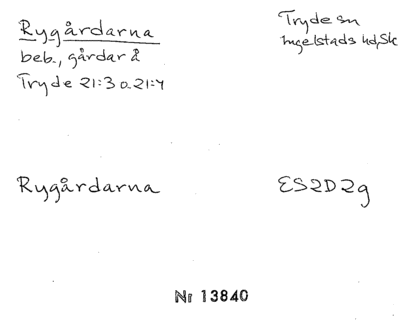 Rygårdarna
beb., gårdar å
Tryde 21:3 o. 21:4
Tryde sn
Ingelstads hd, Sk
Rygårdarna
ES2D2g
Nr 13840